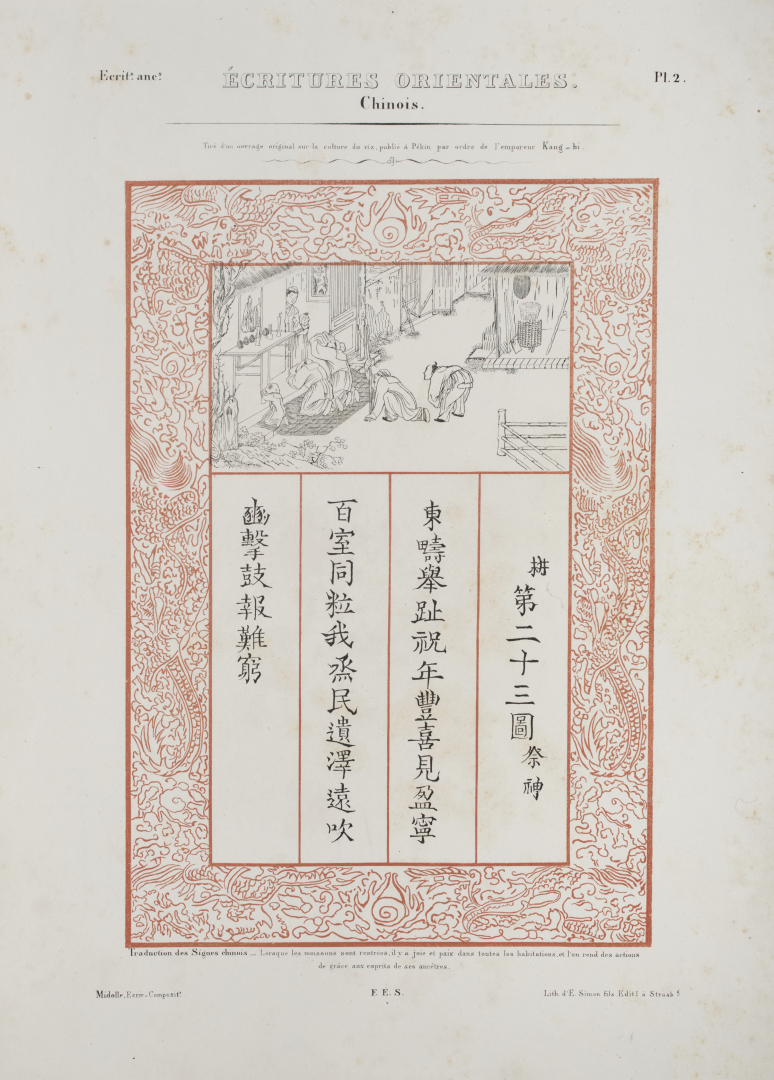 Ecrit. anc.
ÉCRITURES ORIENTALES.
Pl. 2.
Chinois.
Tiré d'un ouvrage original sur la culture du riz, publié à Pékin par ordre de l'empereur Kang-hi.
耕第二十三圖祭神
東疇舉趾祝年豐喜見盈寧
百室同粒我烝民遺澤遠吹
豳擊鼓報難窮
Traduction des Signes chinois _ Lorsque les moissons sont rentrées, il y a joie et paix dans toutes les habitations, et l'on rend des actions
de grâce aux esprits de ses ancêtres.
Midolle, Ecriv.-Composit.r
F. E. S.
Lith. d'E. Simon fils Edit.r à Strasb.g